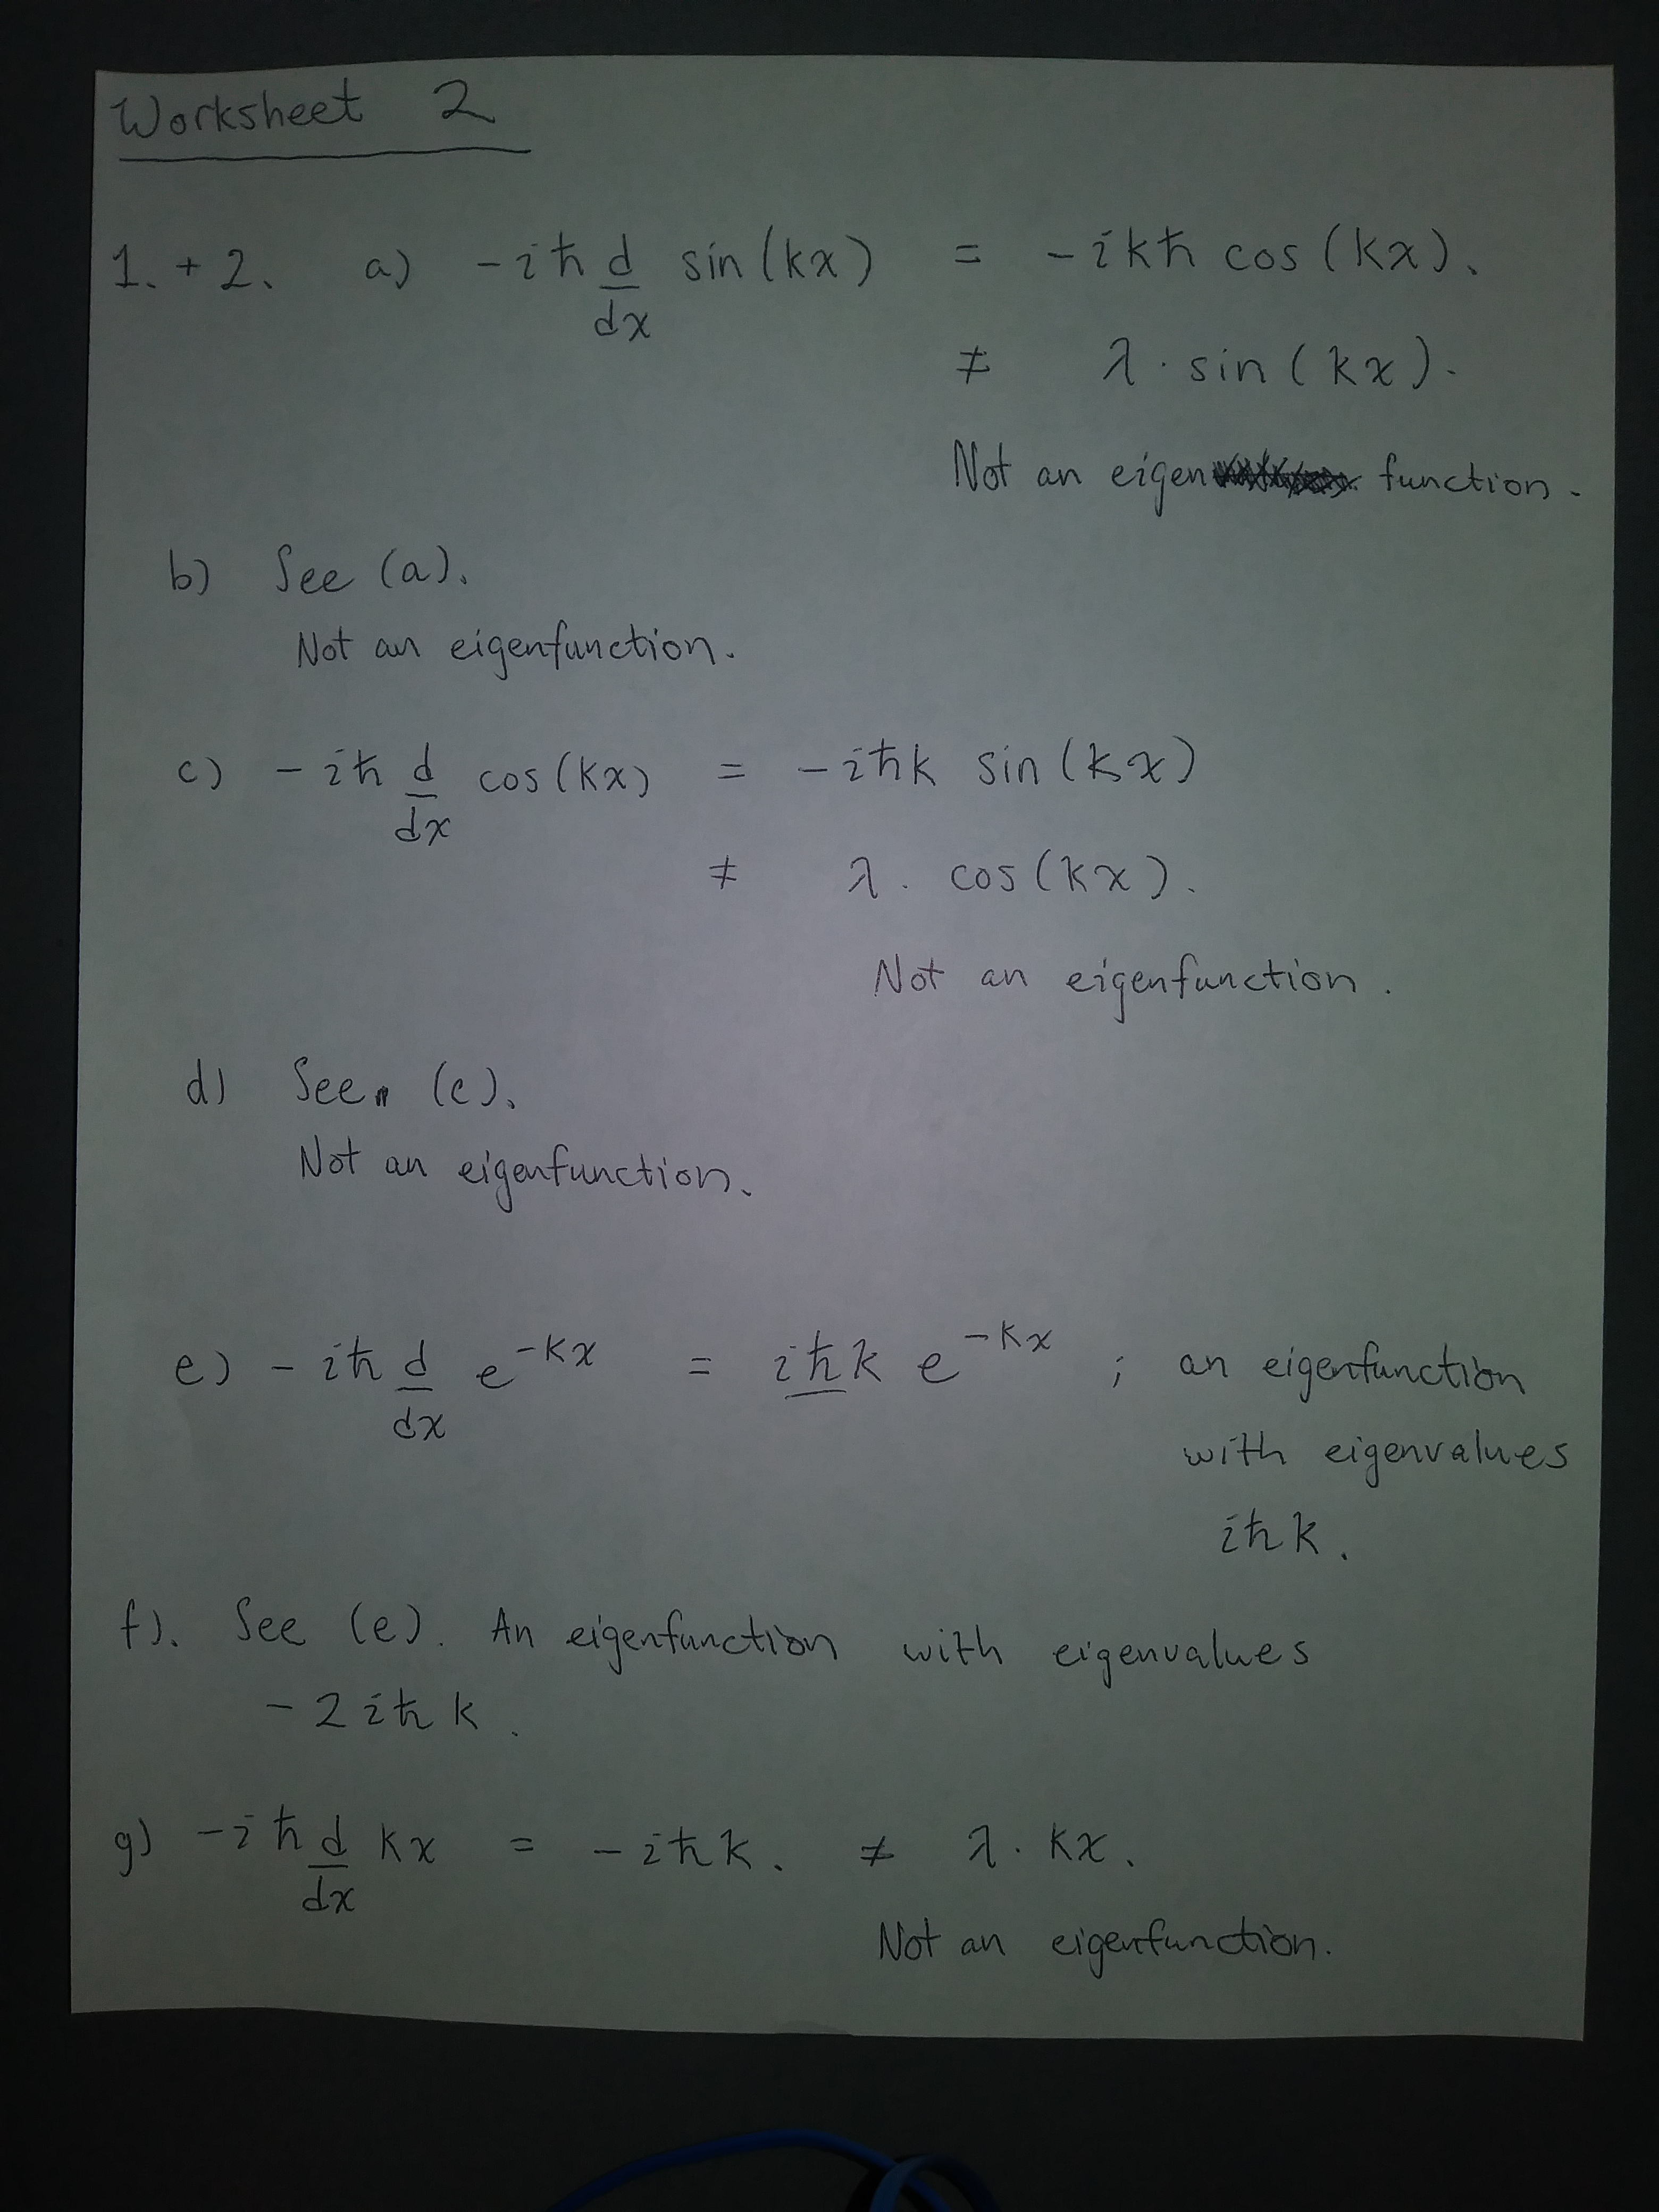 Worksheet 2
1. + 2. a) -iħ d/dx sin(kx) = -ikħ cos(kx).
≠ λ · sin(kx).
Not an eigen function.
b) See (a).
Not an eigenfunction.
c) -iħ d/dx cos(kx) = -iħk sin(kx)
≠ λ. cos(kx).
Not an eigenfunction.
d) See (c).
Not an eigenfunction.
e) -iħ d/dx e^{-kx} = iħk e^{-kx} ; an eigenfunction
with eigenvalues
iħk.
f). See (e). An eigenfunction with eigenvalues
-2iħk.
g) -iħ d/dx kx = -iħk. ≠ λ. kx.
Not an eigenfunction.